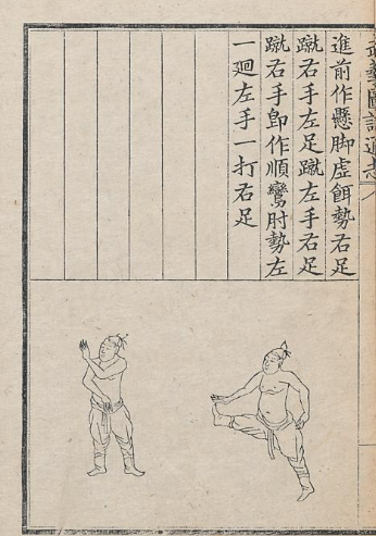 武藝圖譜通志
進前作懸脚虛餌勢右足
蹴右手左足蹴左手右足
蹴右手卽作順鸞肘勢左
一廻左手一打右足